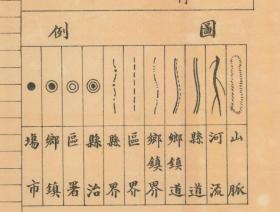 圖例
山脈
河流
縣道
鄉鎮道
鄉鎮界
區界
縣界
縣治
區署
鄉鎮
場市